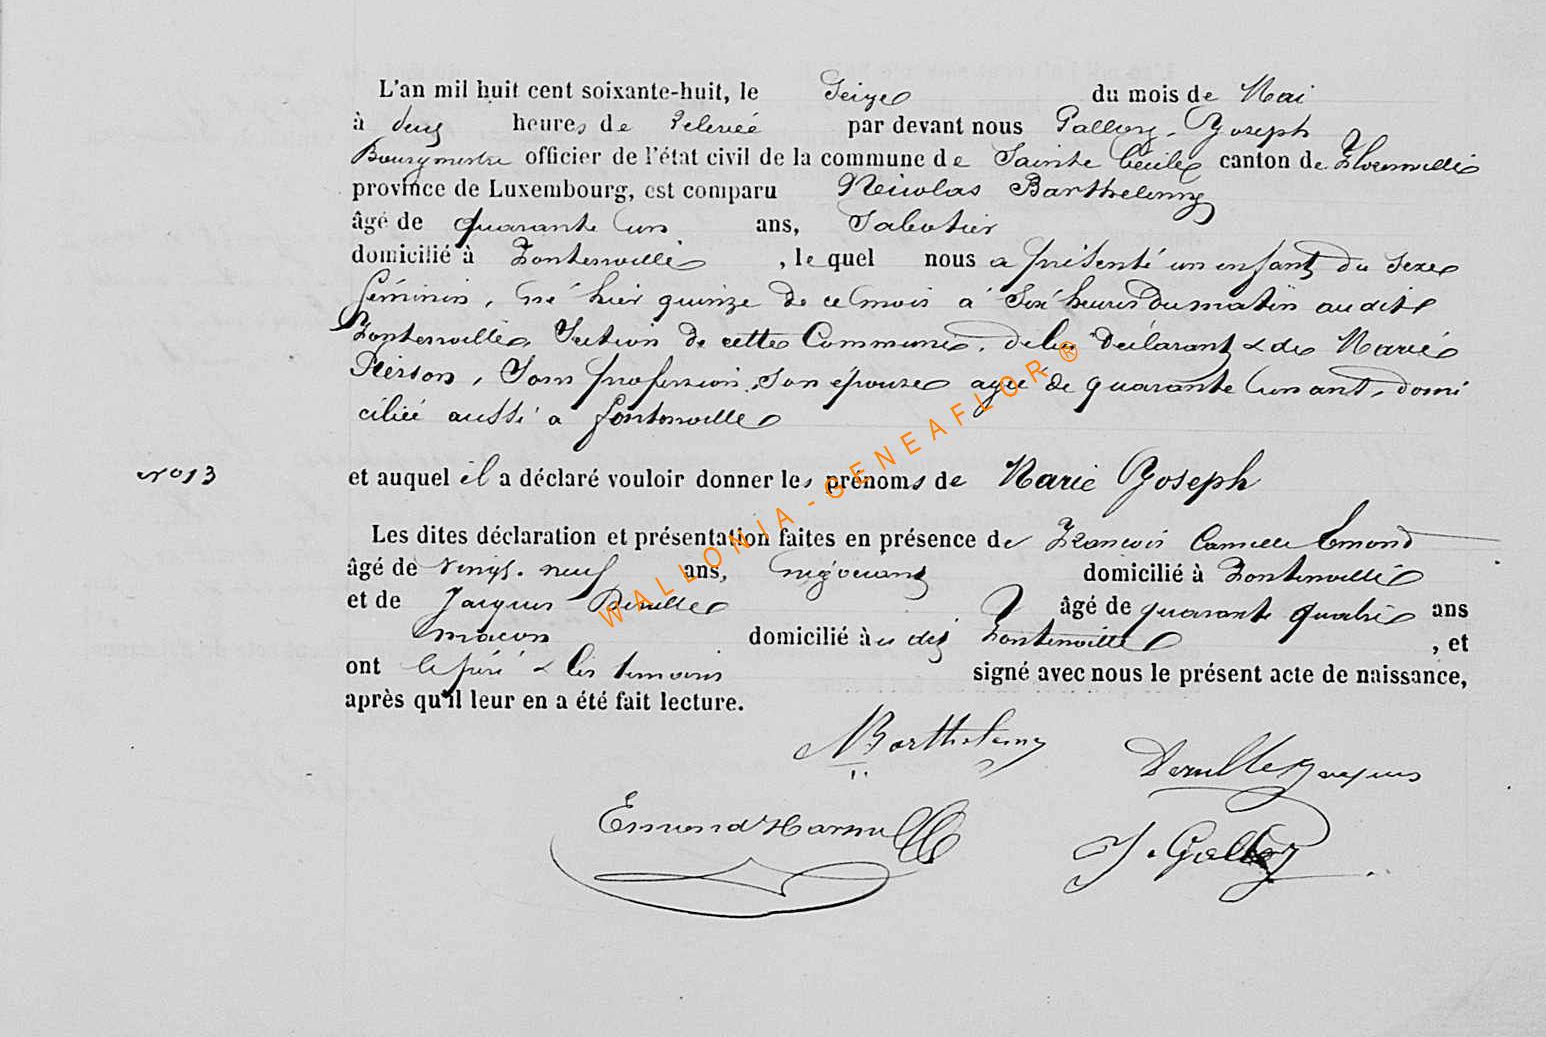 L'an mil huit cent soixante-huit, le Seize du mois de Mai
à deux heures de relevée par devant nous Gallory, Joseph
Bourgmestre officier de l'état civil de la commune de Sainte Cécile canton de Florenville
province de Luxembourg, est comparu Nicolas Barthelemy
âgé de quarante un ans, Sabotier
domicilié à Fontenoille, le quel nous a présenté un enfant du sexe
féminin, né hier quinze de ce mois à six heures du matin au dit
Fontenoille, Section de cette Commune, de lui Déclarant & de Marie
Pierson, Sans profession, Son épouse agée de quarante un ans, domi
ciliée aussi à fontenoille
N° 13 et auquel il a déclaré vouloir donner les prénoms de Marie Joseph
Les dites déclaration et présentation faites en présence de François Camille Emond
âgé de vingt-neuf ans, négociant domicilié à Fontenoille
et de Jacques âgé de quarante quatre ans
maçon domicilié au dit Fontenoille, et
ont le père & les temoins signé avec nous le présent acte de naissance,
après qu'il leur en a été fait lecture.
NBarthelemy
Jacques
Emond
J. Gallory
WALLONIA-GENEAFLOR®